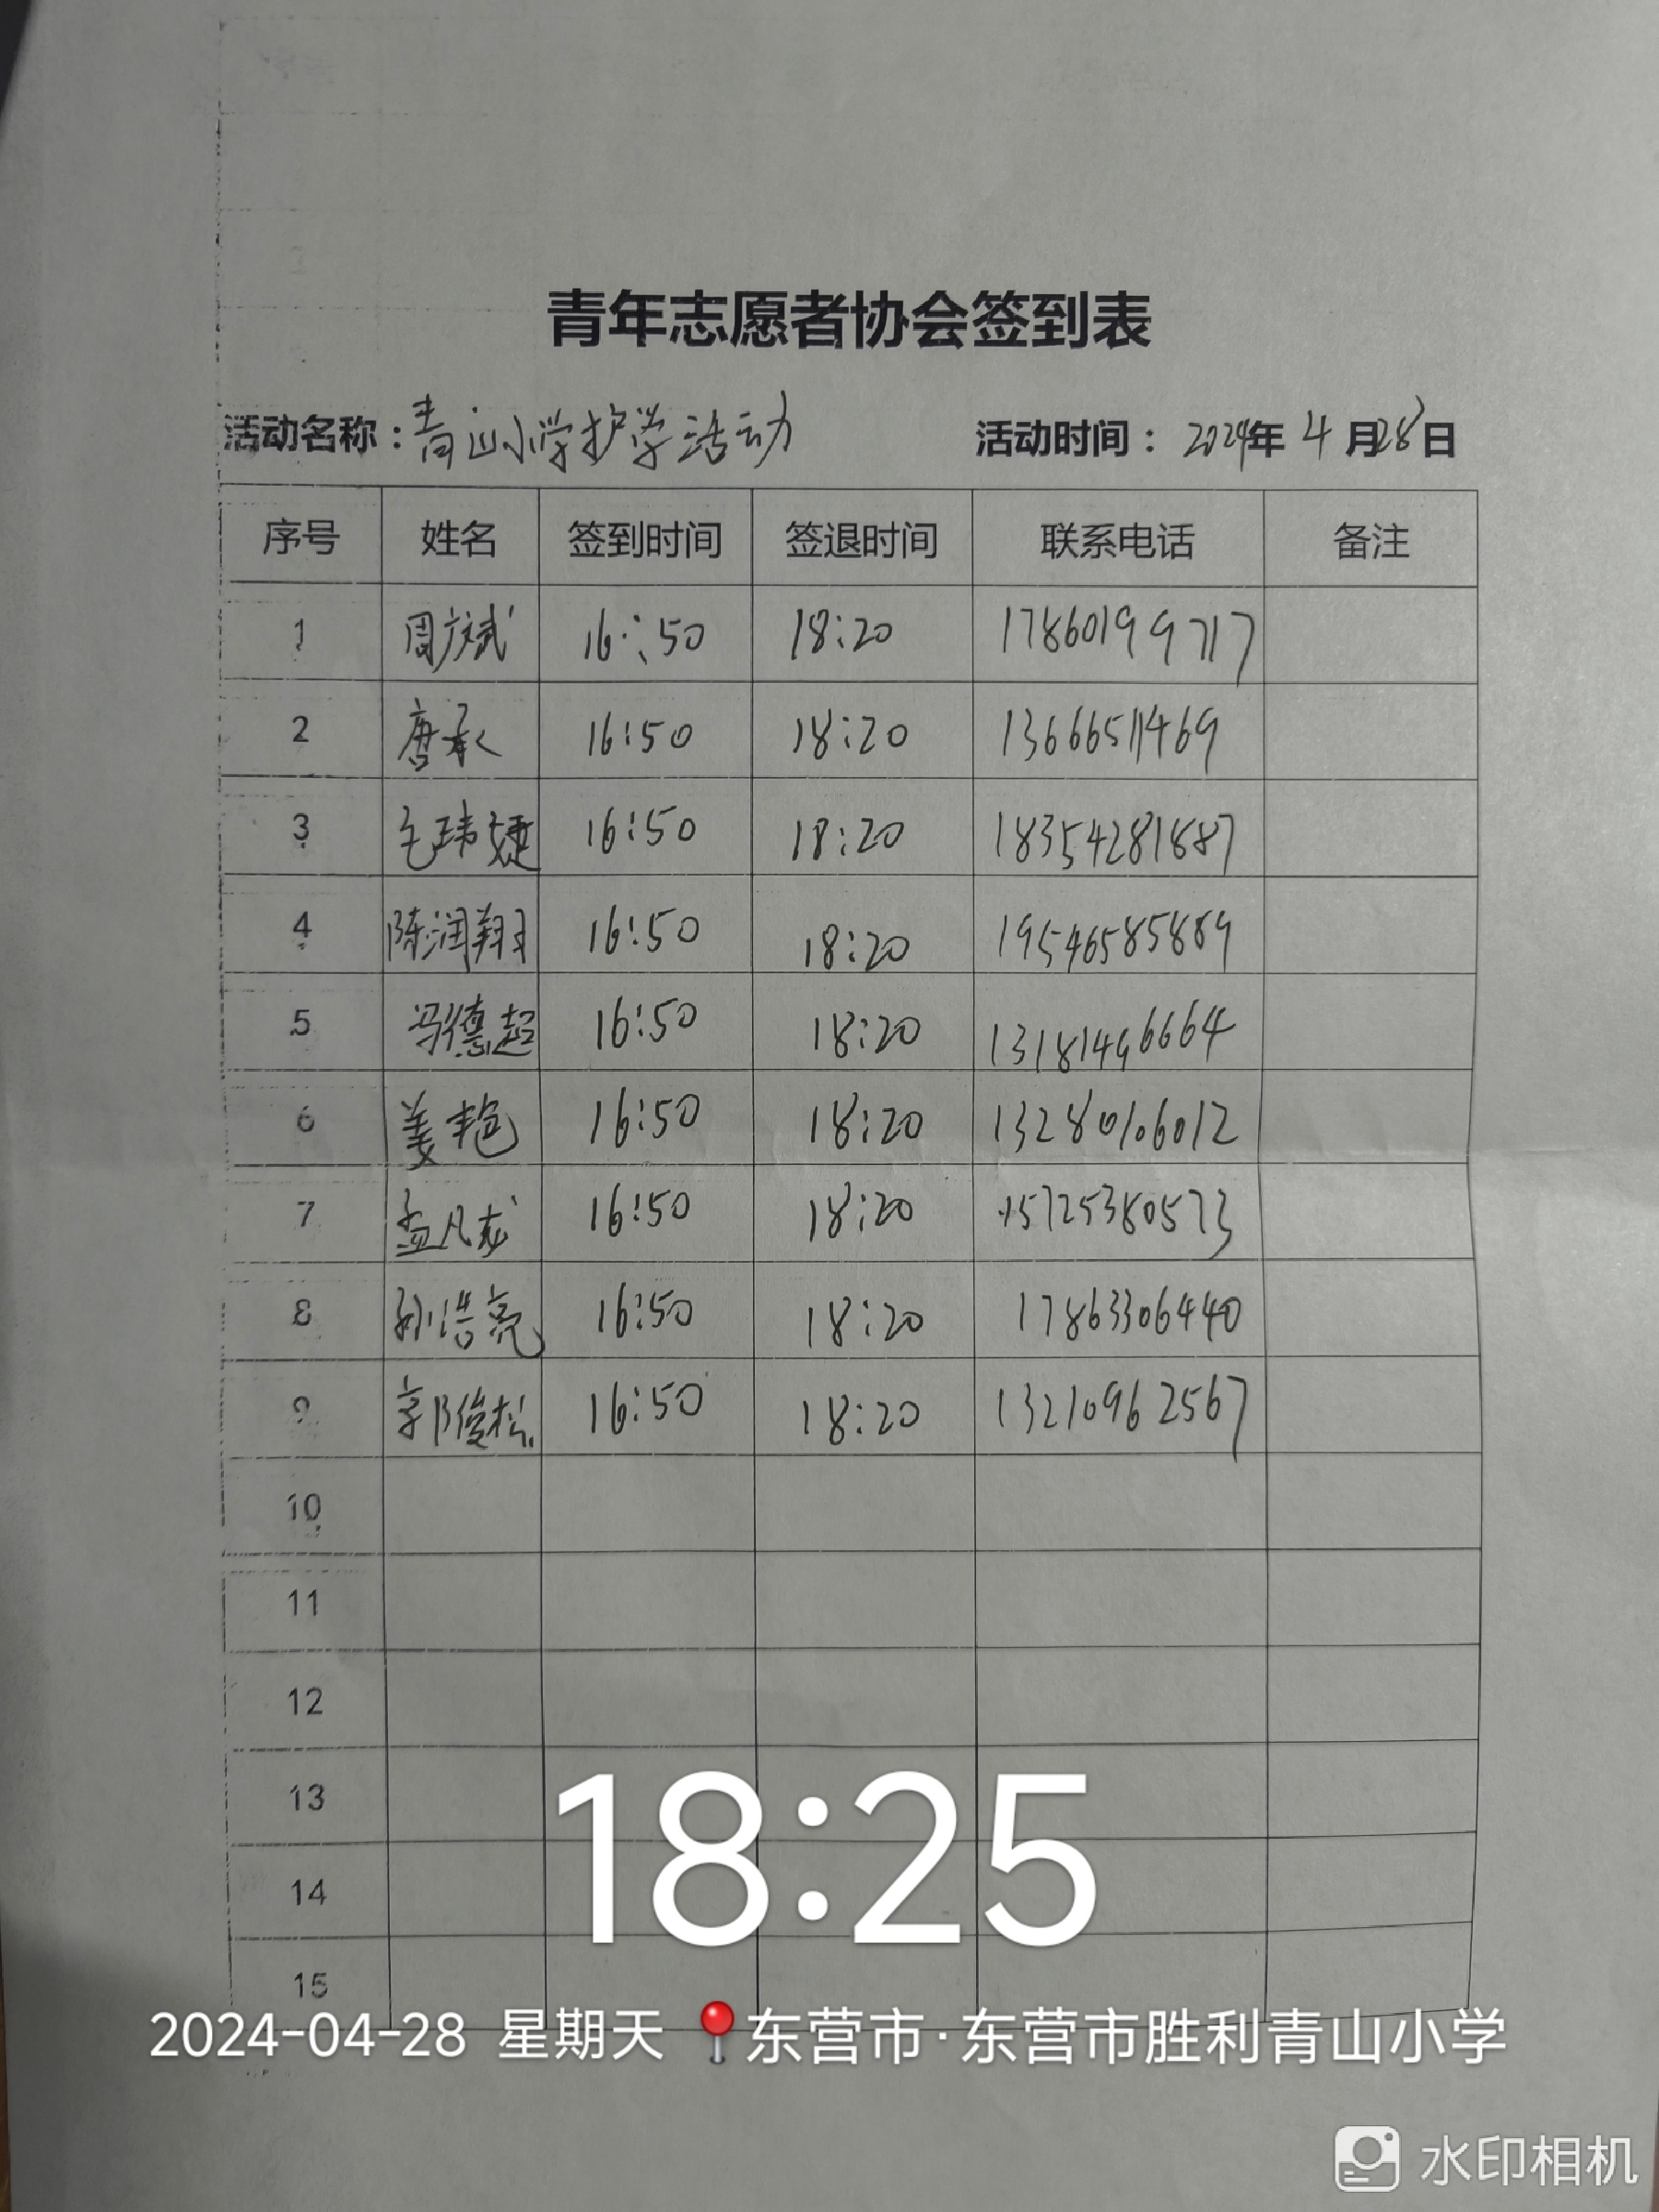 青年志愿者协会签到表
活动名称：青山小学护学活动 活动时间： 2024年 4 月28日
序号 姓名 签到时间 签退时间 联系电话 备注
1 周文斌 16:50 18:20 17860199717
2 唐承 16:50 18:20 13666511469
3 毛玮婕 16:50 18:20 18354281887
4 陈润翔 16:50 18:20 19546585889
5 冯德超 16:50 18:20 13181496664
6 姜艳 16:50 18:20 13280106012
7 孟凡龙 16:50 18:20 15725380573
8 孙浩亮 16:50 18:20 17863306440
9 郭俊松 16:50 18:20 13210962567
10
11
12
13
14
15
18:25
2024-04-28 星期天 东营市·东营市胜利青山小学
水印相机